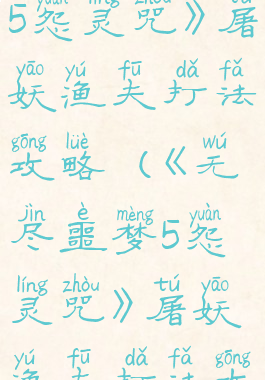 5怨灵咒》屠
yāo yú fū dǎ fǎ
妖渔夫打法
gōng lüè wú
攻略(《无
jìn è mèng yuàn
尽噩梦5怨
líng zhòu tú yāo
灵咒》屠妖
yú fū dǎ fǎ gōng